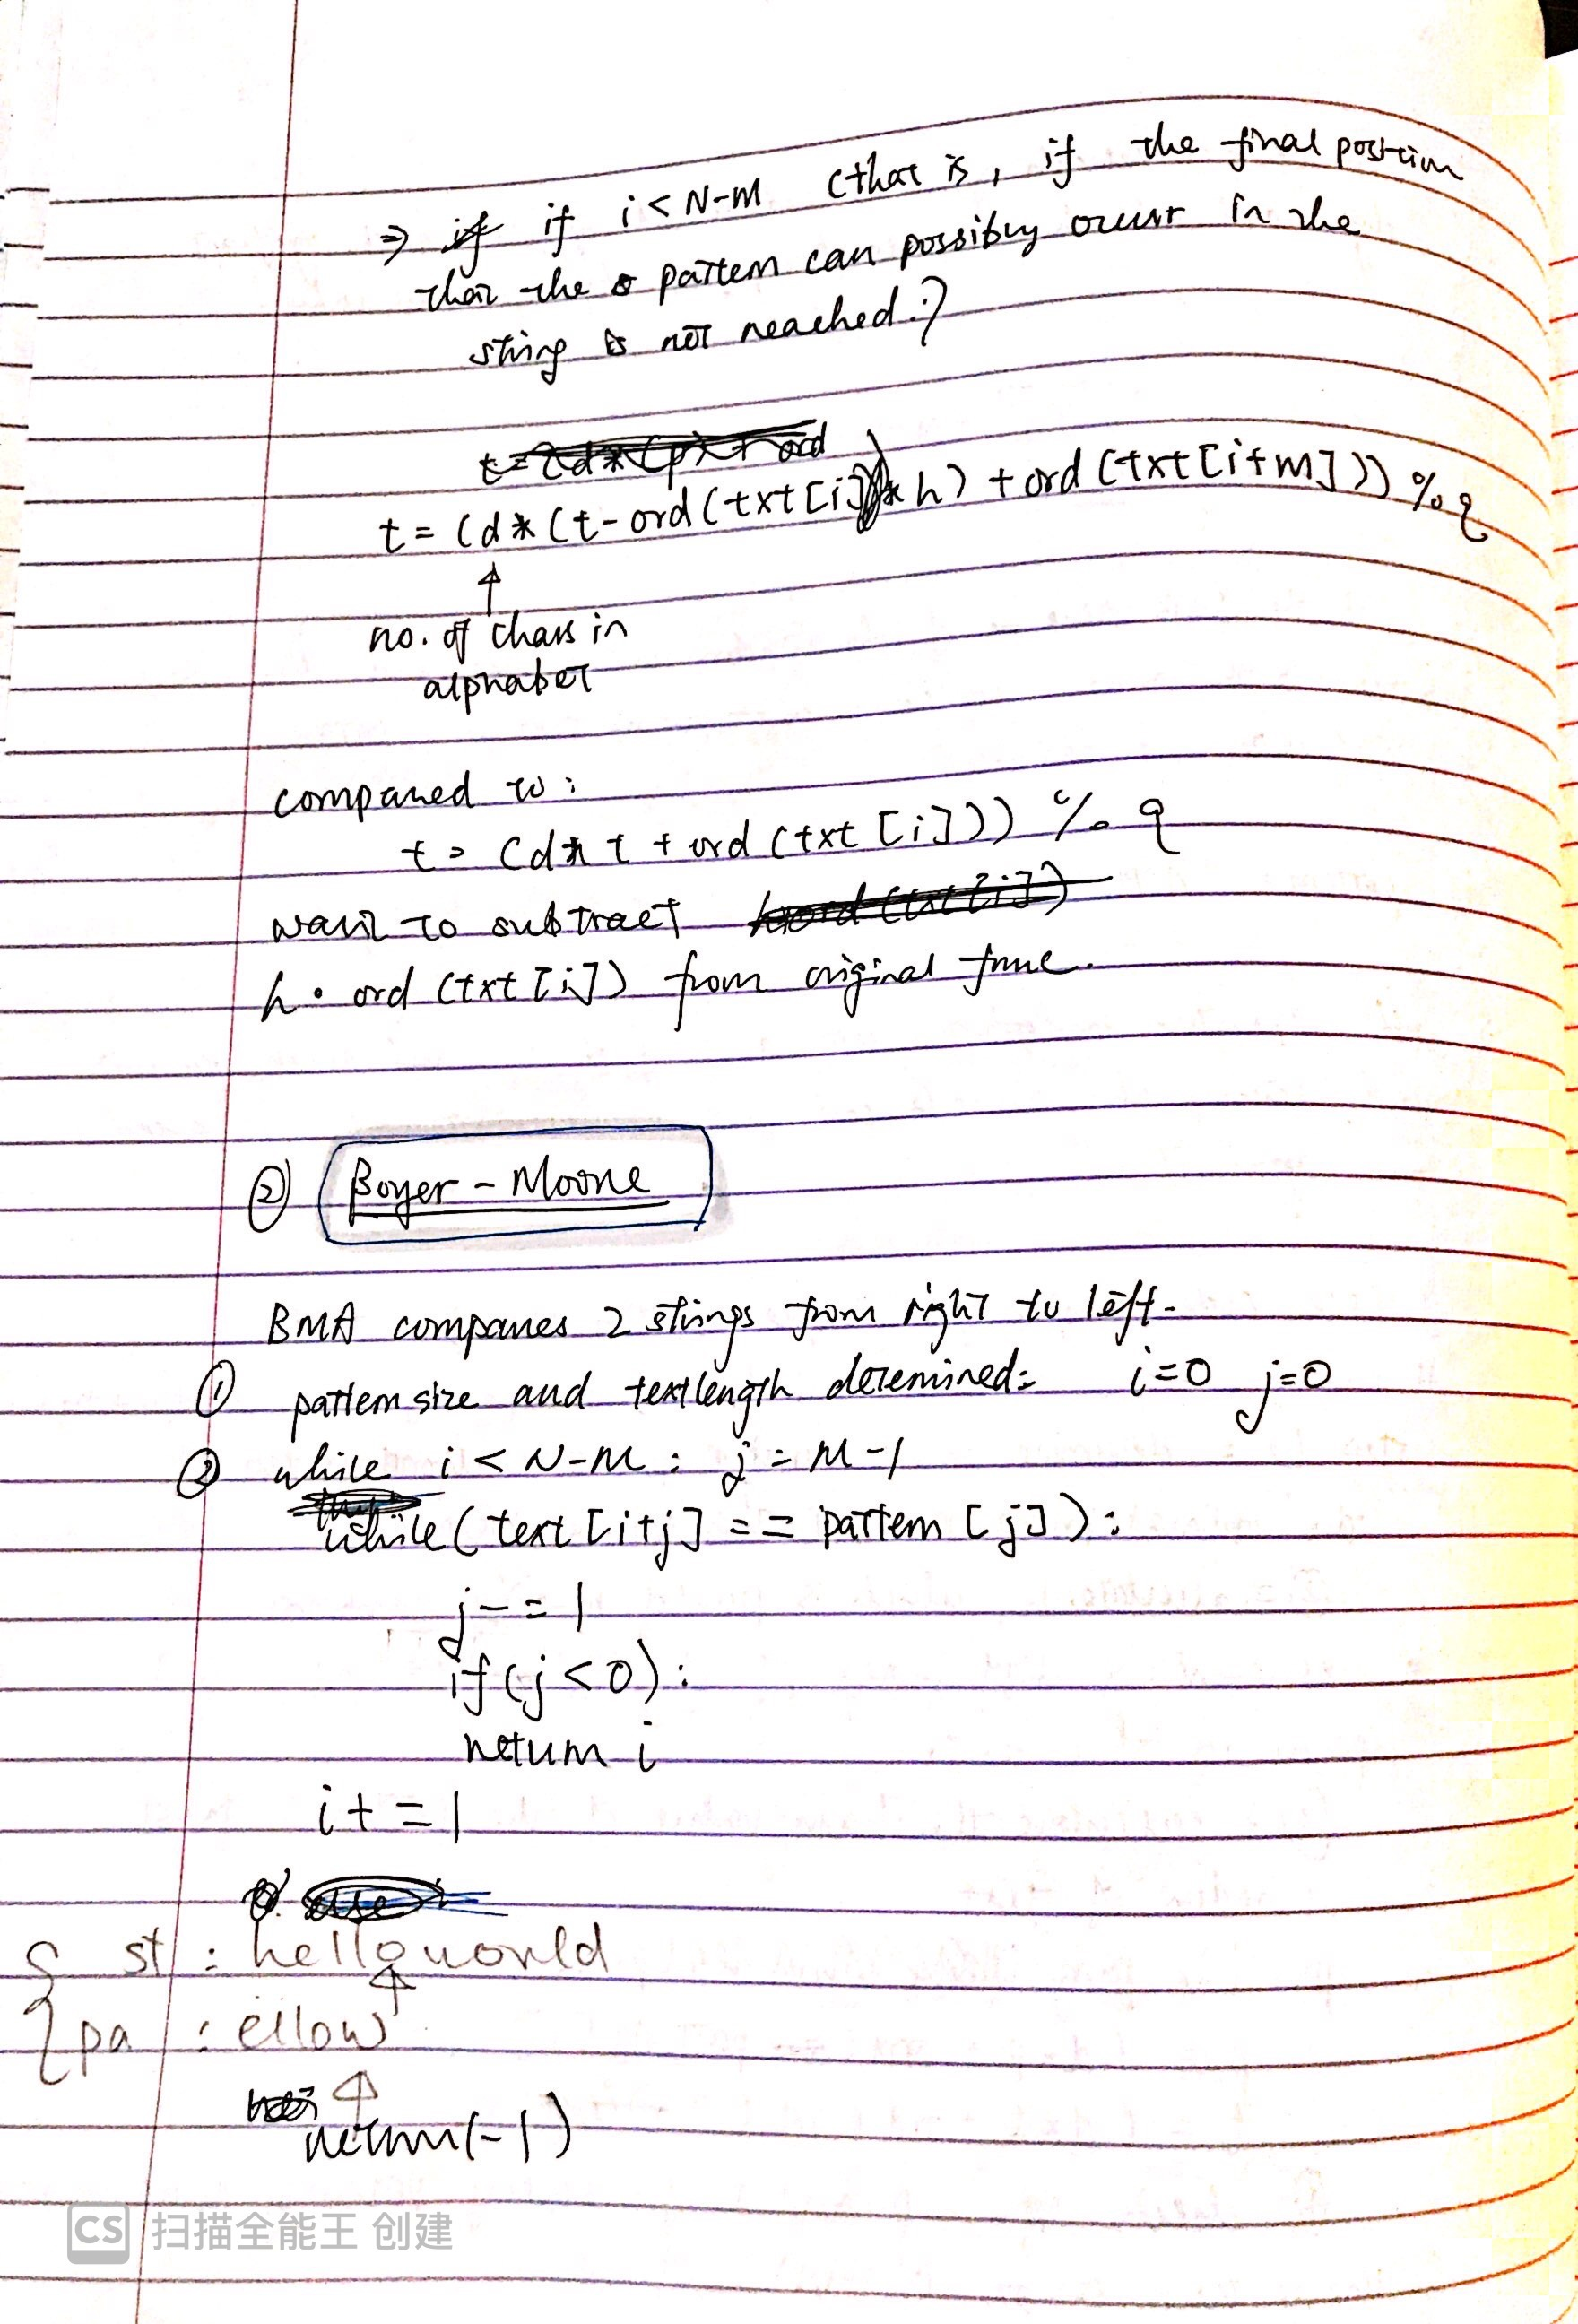 ⇒ if if i < N-M (that is, if the final position
that the pattern can possibly occur in the
string is not reached:)
t = (d*(p)+ord
t = (d*(t-ord(txt[i])*h) + ord(txt[i+M])) % q
↑
no. of chars in
alphabet
compared to:
t = (d*t + ord(txt[i])) % q
want to subtract h·ord(txt[i])
h • ord(txt[i]) from original func.
② Boyer - Moore
BMA compares 2 strings from right to left.
① pattern size and text length deremined: i=0 j=0
② while i < N-M: j = M-1
while(text[i+j] == pattern[j]):
j -= 1
if(j<0):
return i
i += 1
else
{ st : helloworld
pa : ellow
return(-1)
CS 扫描全能王 创建